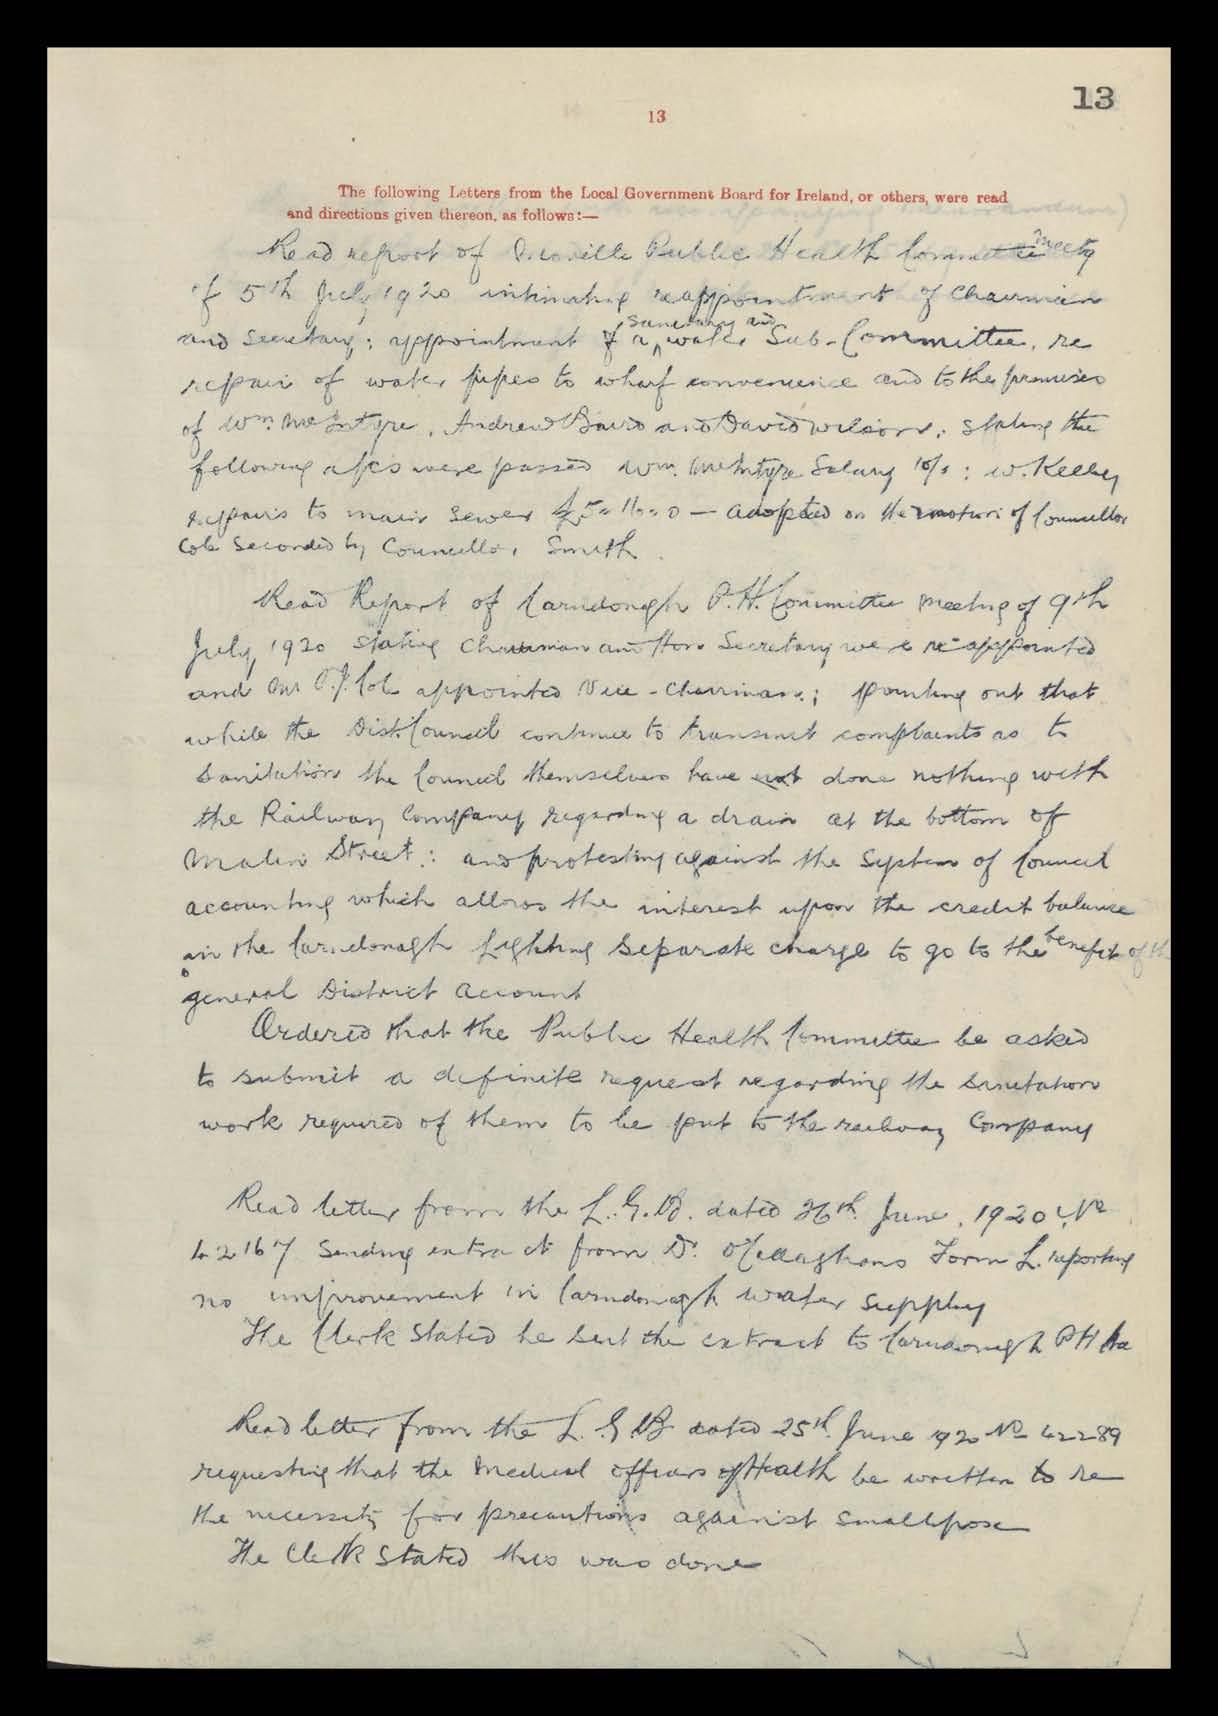 13
13
The following Letters from the Local Government Board for Ireland, or others, were read
and directions given thereon, as follows:—
Read report of Moville Public Health Committee Meetg
of 5th July 1920 intimating reappointment of Chairman
and Secretary; appointment of a sanitary and water Sub-Committee, re
repair of water pipes to wharf convenience and to the premises
of Wm. McIntyre, Andrew Baird and David Wilson; stating the
following a/cs were passed Wm. McIntyre Salary 10/-: W. Kelly
repairs to main sewer £5=16=0 — adopted on the motion of Councillor
Cole seconded by Councillor Smith.
Read Report of Carndonagh P.H. Committee meeting of 9th
July 1920 stating Chairman and Hon Secretary were re-appointed
and Mr T.J. Cole appointed Vice-Chairman; pointing out that
while the Dist. Council continue to transmit complaints as to
Sanitation the Council themselves have not done nothing with
the Railway Company regarding a drain at the bottom of
Malin Street: and protesting against the system of Council
accounting which allows the interest upon the credit balance
in the Carndonagh Lighting Separate charge to go to the benefit of th
general District account
Ordered that the Public Health Committee be asked
to submit a definite request regarding the Sanitation
work required of them to be put to the railway Company
Read letter from the L.G.B. dated 26th June, 1920, No
42167 sending extract from Dr. O'Callaghans Form L. reporting
no improvement in Carndonagh water supply
The Clerk stated he sent the extract to Carndonagh P H
Read letter from the L.G.B dated 25th June 1920 No 42289
requesting that the Medical officers of Health be written to re
the necessity for precautions against smallpox
The Clerk stated this was done